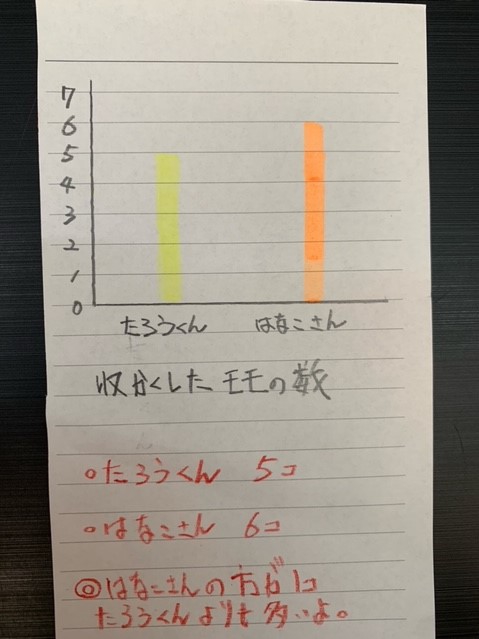 7
6
5
4
3
2
1
0
たろうくん はなこさん
収かくしたモモの数
○たろうくん 5コ
○はなこさん 6コ
◎はなこさんの方が1コ
たろうくんよりも多いよ。